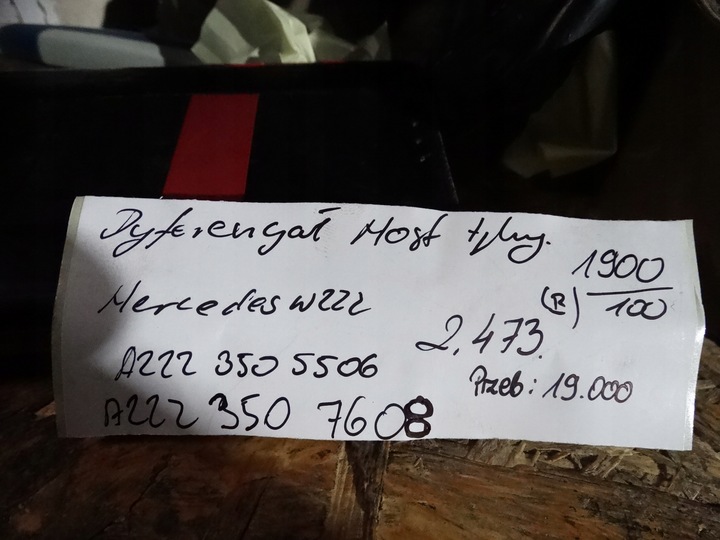 Dyferengał Most tylny.
1900
(R) 100
Mercedes W222
2.473.
A222 350 5506
Przeb: 19.000
A222 350 7608